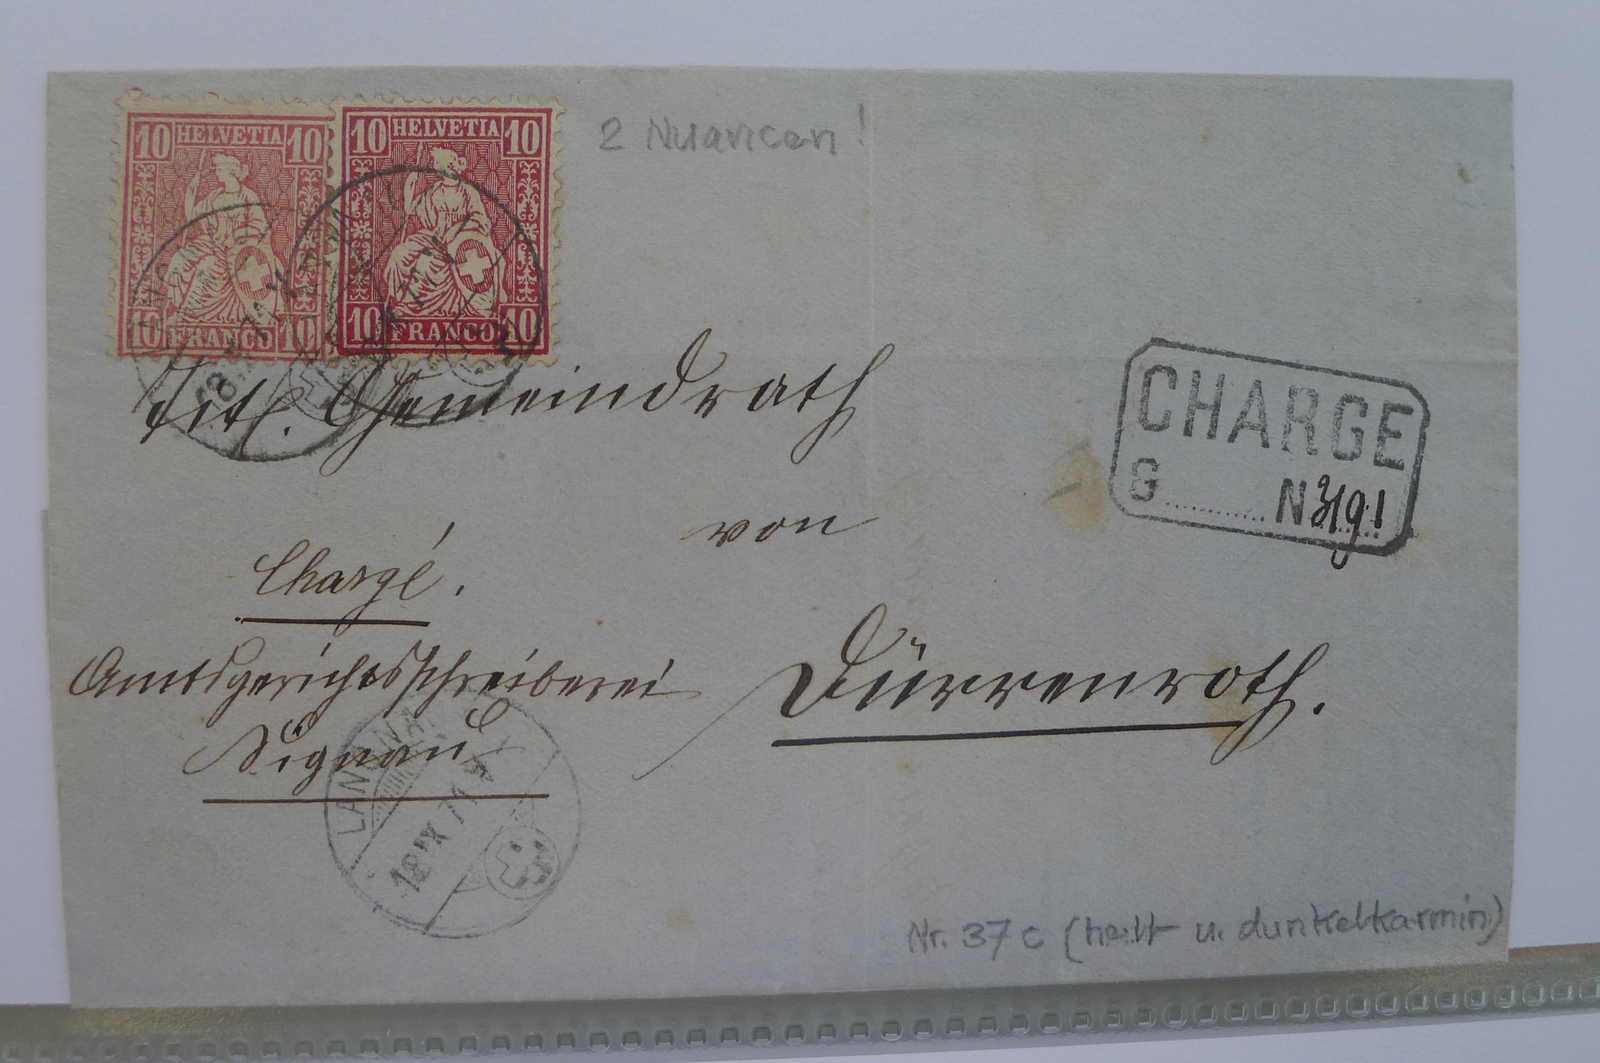 10 HELVETIA 10
10 FRANCO 10
10 HELVETIA 10
10 FRANCO 10
2 Nuancen!
Titl. Gemeindrath
von
Dürrenroth.
Chargé.
Amtsgerichtsschreiberei
Signau
CHARGE
G.......... N 3191
LANGNAU
18 IX 71
Nr. 37 c (hell u. dunkelkarmin)